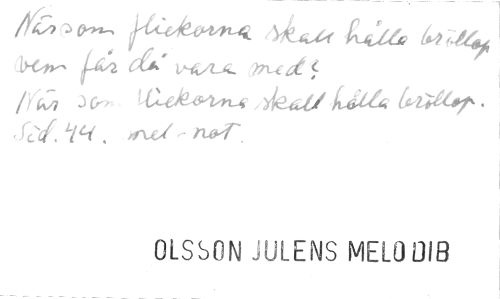 När som flickorna skall hålla bröllop
vem får då vara med?
När som flickorna skall hålla bröllop.
Sid. 44. mel-not.
OLSSON JULENS MELODIB